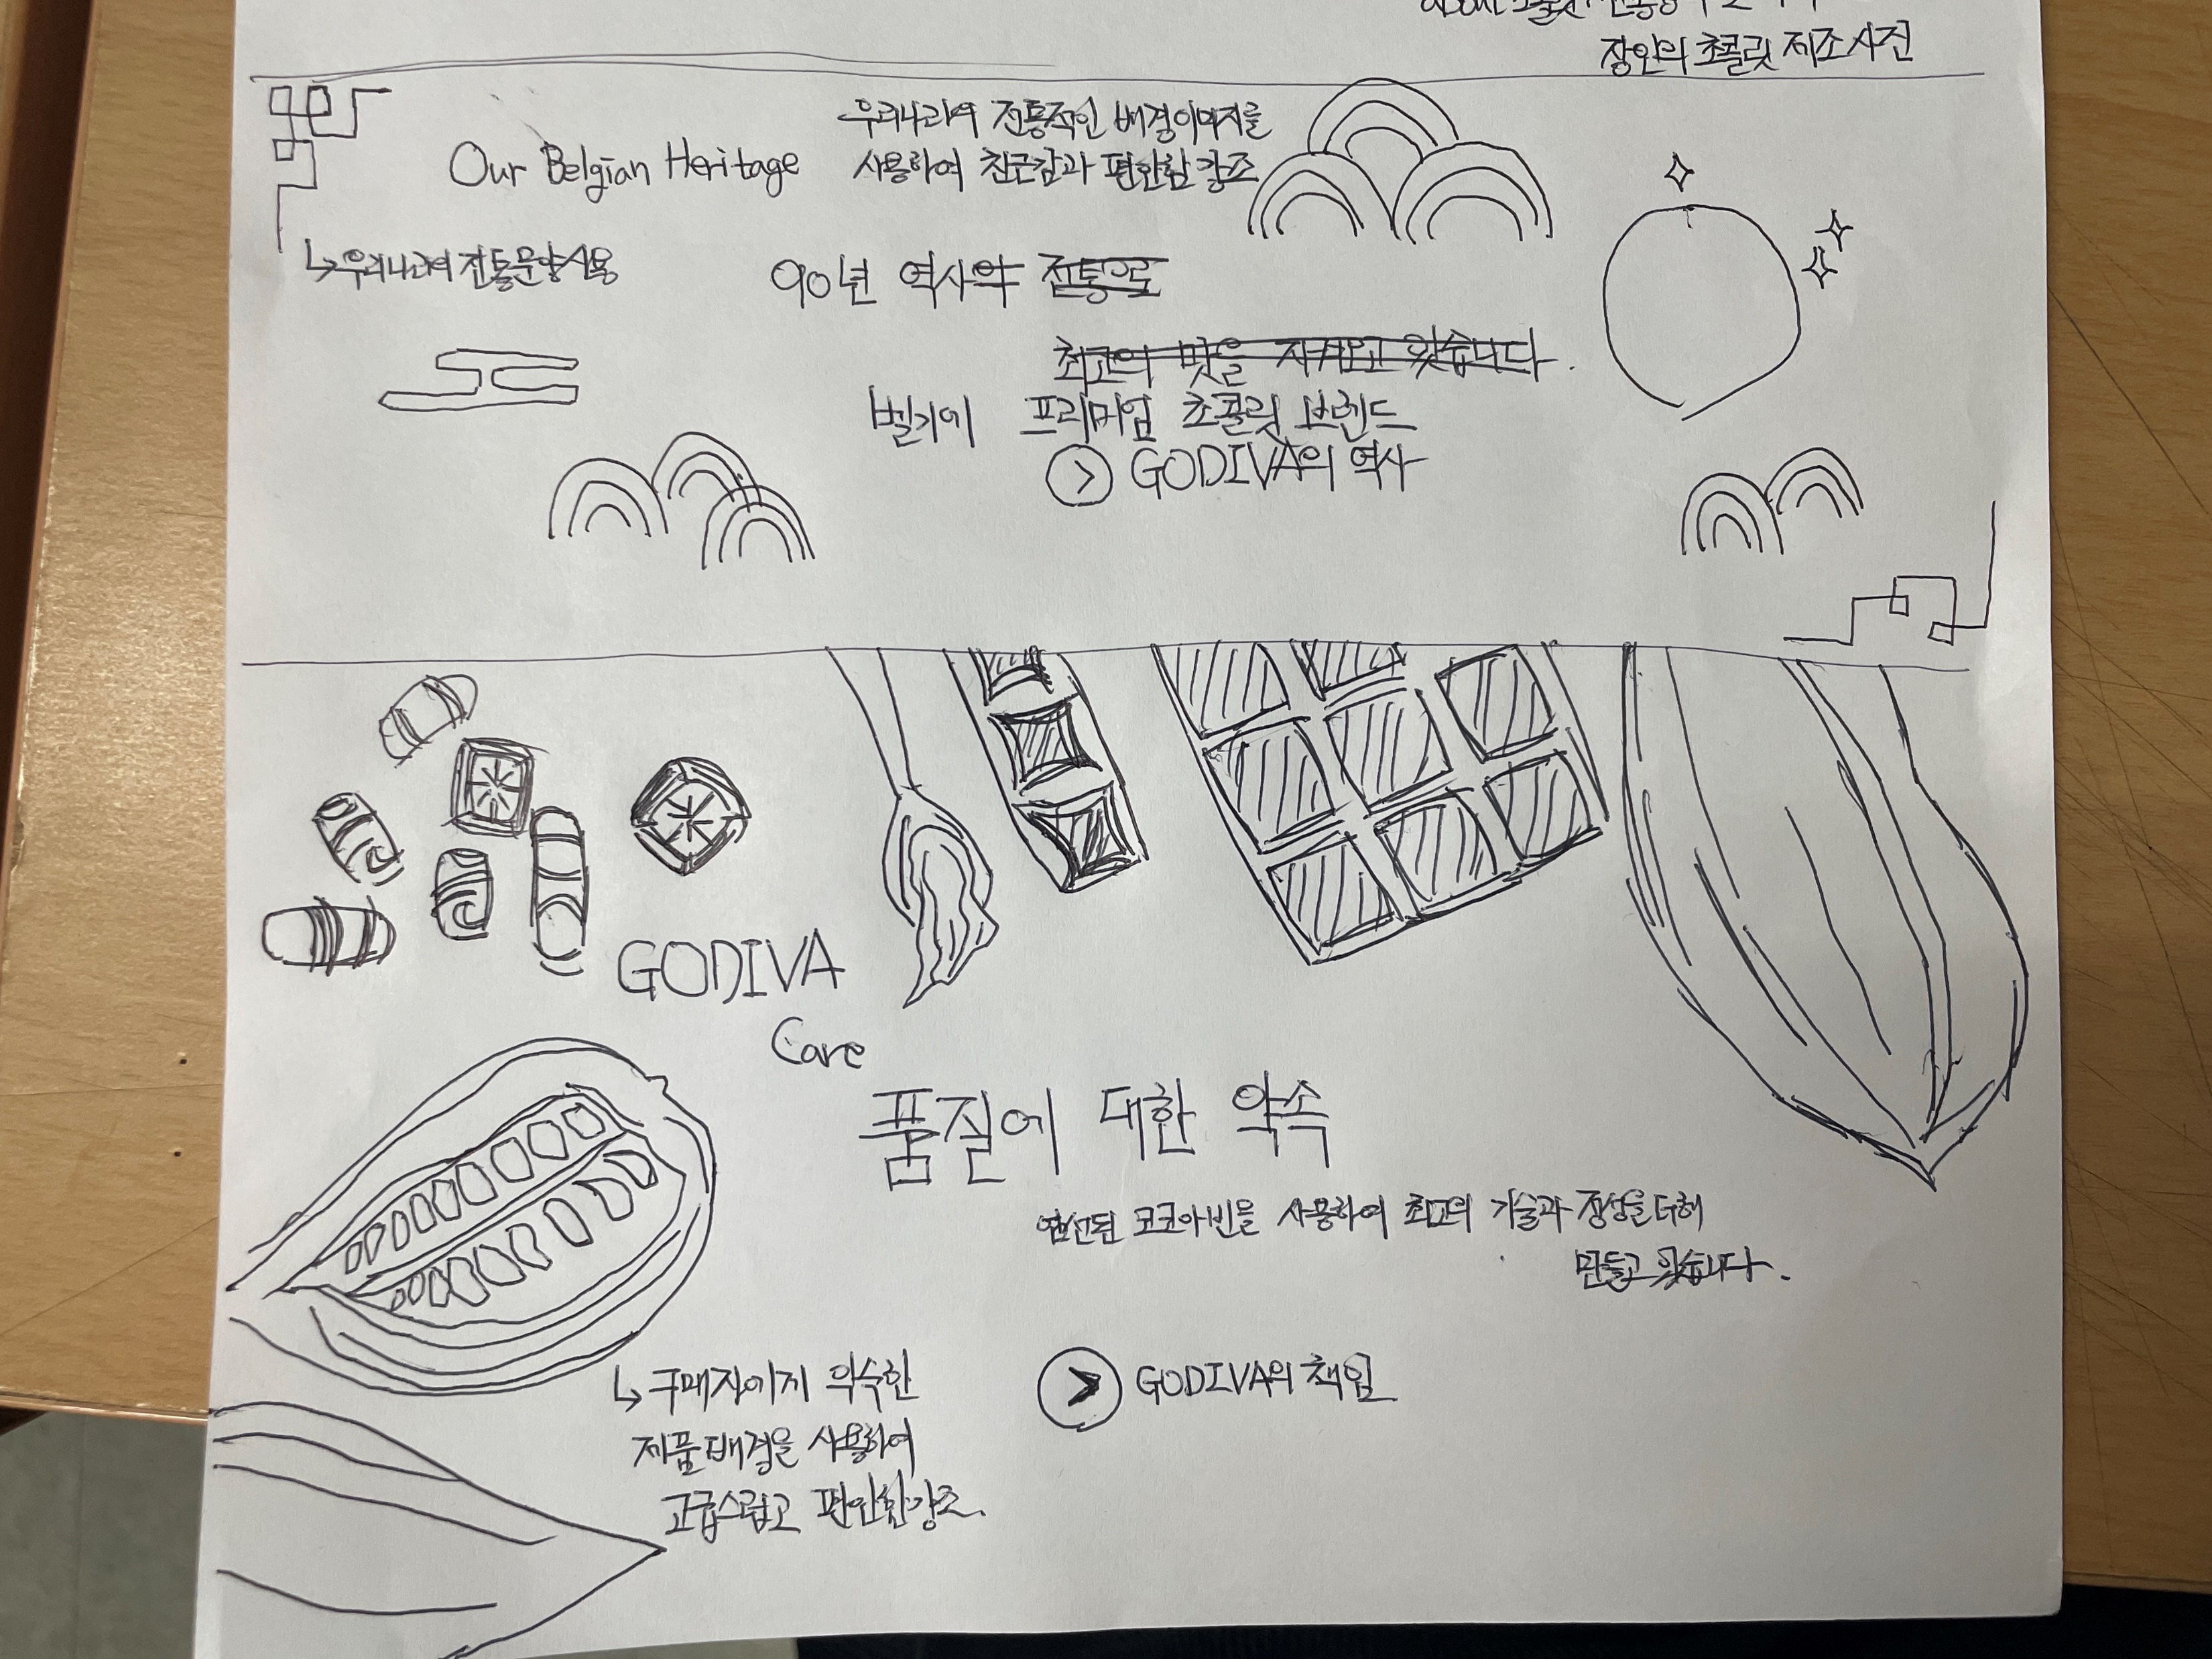 장인의 초콜릿 제조사진
우리나라의 전통적인 배경이미지를
Our Belgian Heritage 사용하여 친근감과 편안함 강조
↳우리나라의 전통문양사용
90년 역사와 전통으로
최고의 맛을 지켜오고 있습니다.
벨기에 프리미엄 초콜릿 브랜드
> GODIVA의 역사
GODIVA
Care
품질에 대한 약속
엄선된 코코아빈을 사용하여 최고의 기술과 정성을 더해
만들고 있습니다.
↳ 구매자에게 약속한
제품배경을 사용하여
고급스럽고 편안함강조.
> GODIVA의 책임